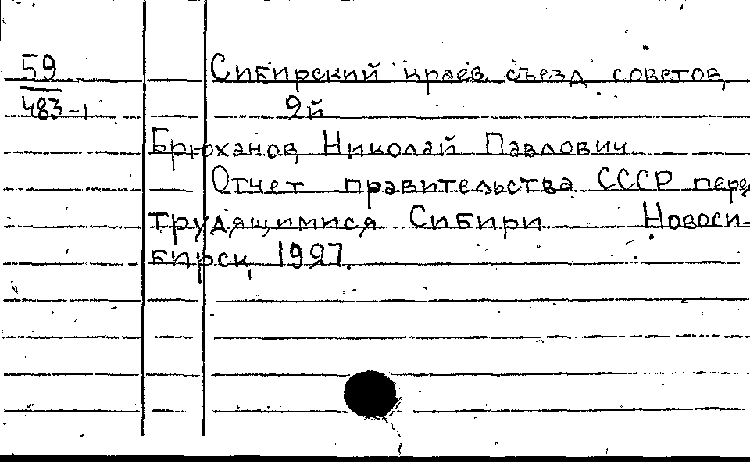 59
483-1
Сибирский краев. съезд советов,
2й
Брюханов, Николай Павлович.
Отчет правительства СССР пере
трудящимися Сибири. Новоси-
бирск, 1927.